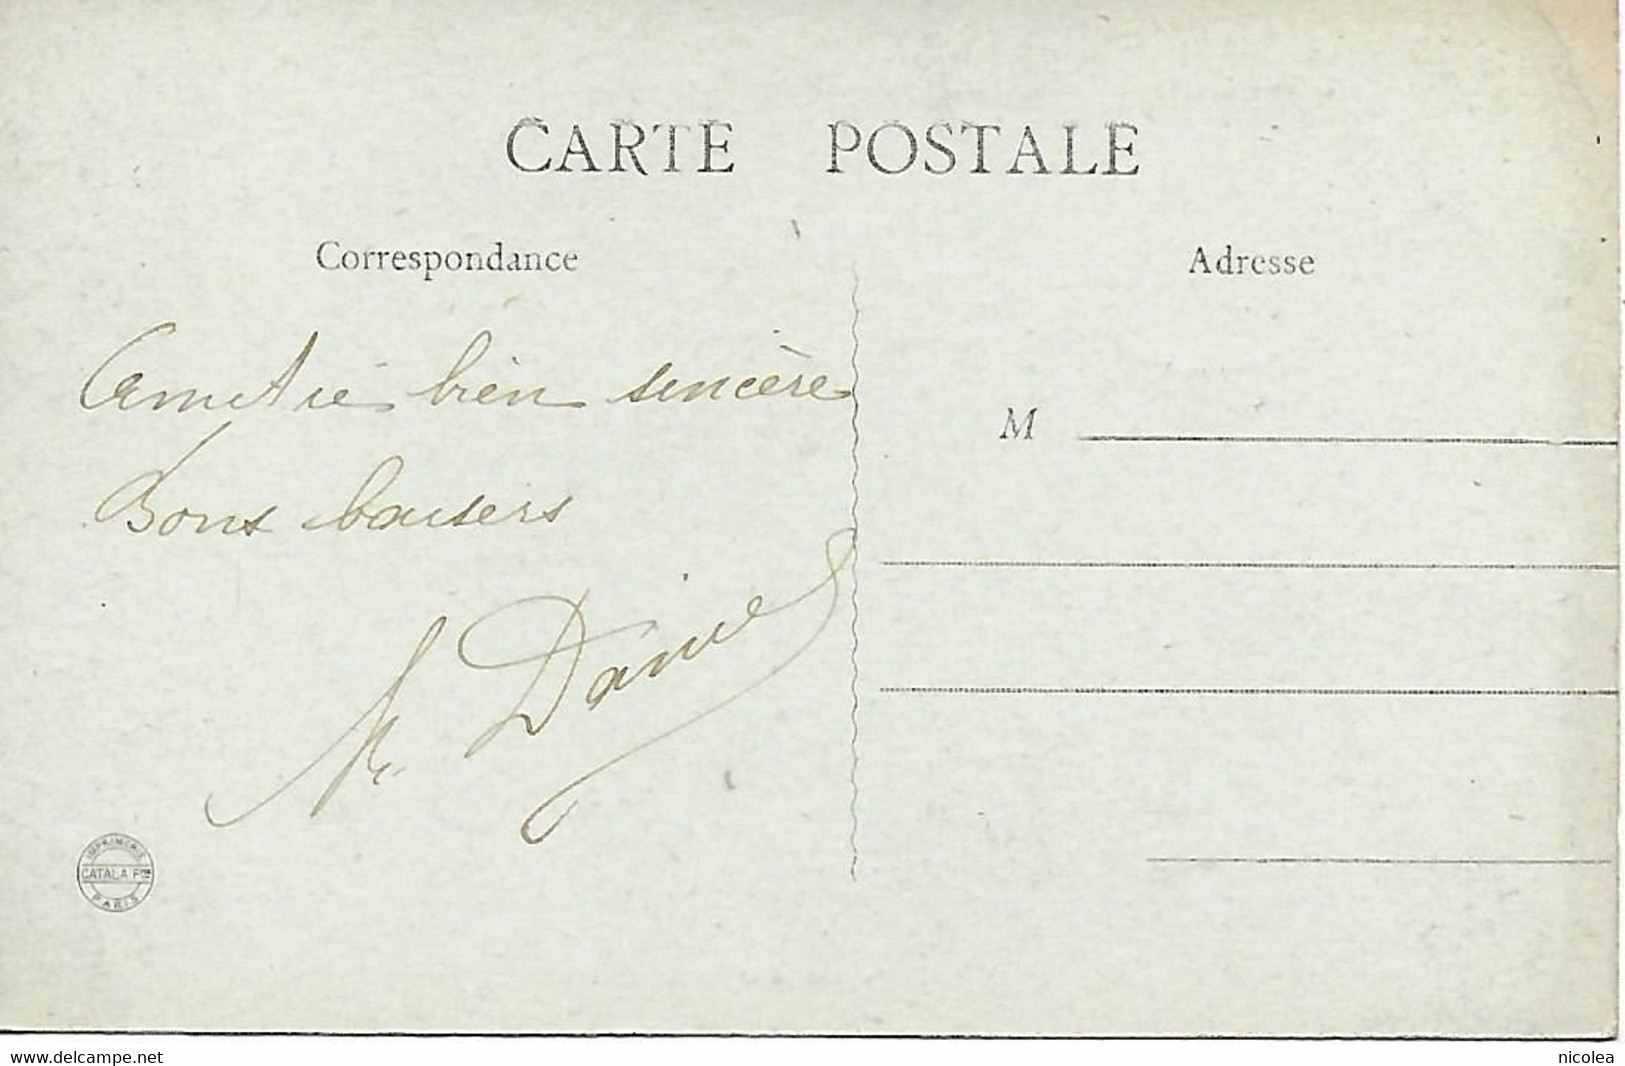 CARTE POSTALE
Correspondance
Adresse
Amitié bien sincère
M
Bons baisers
IMPRIMERIE
CATALA Fres
PARIS
www.delcampe.net
nicolea